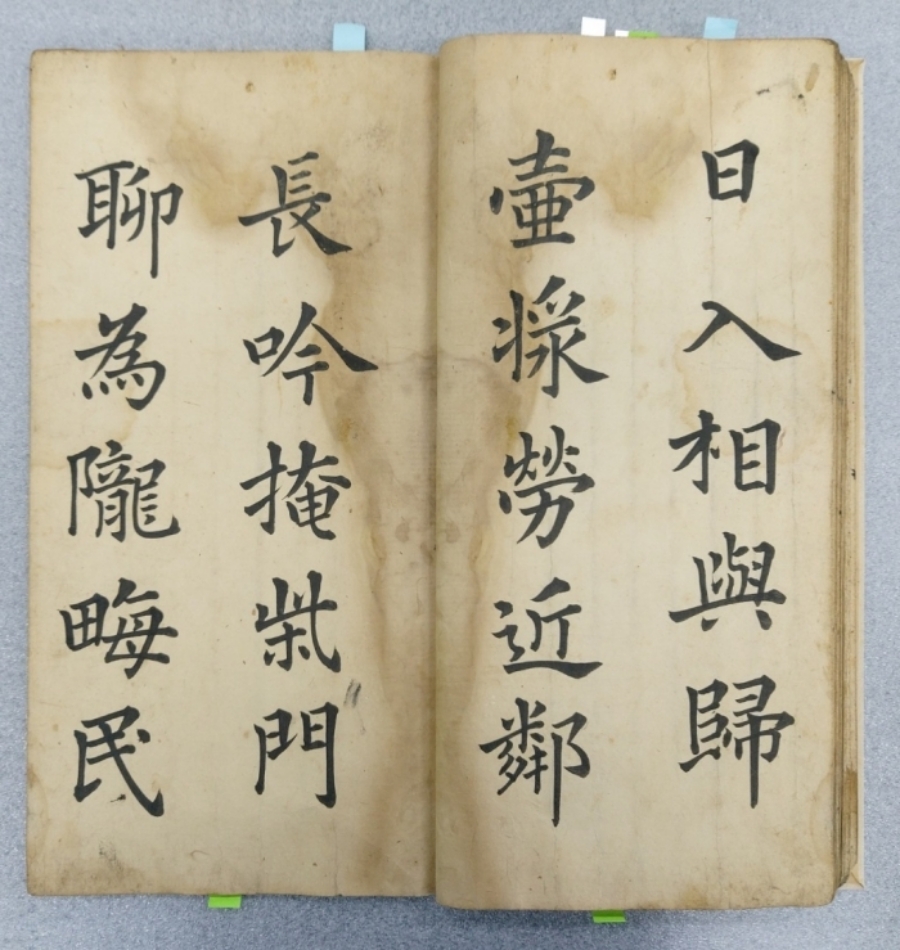 日入相與歸
壷漿勞近鄰
長吟掩柴門
聊為隴畮民